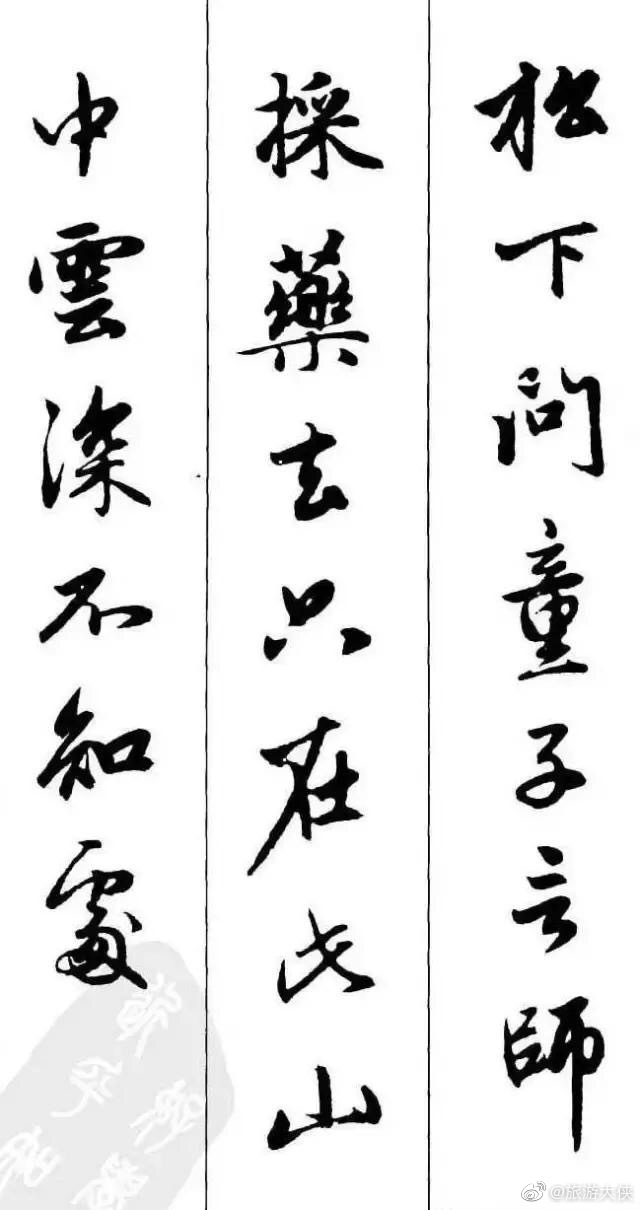 松下问童子言師
採藥去只在此山
中雲深不知處
@旅游大侠